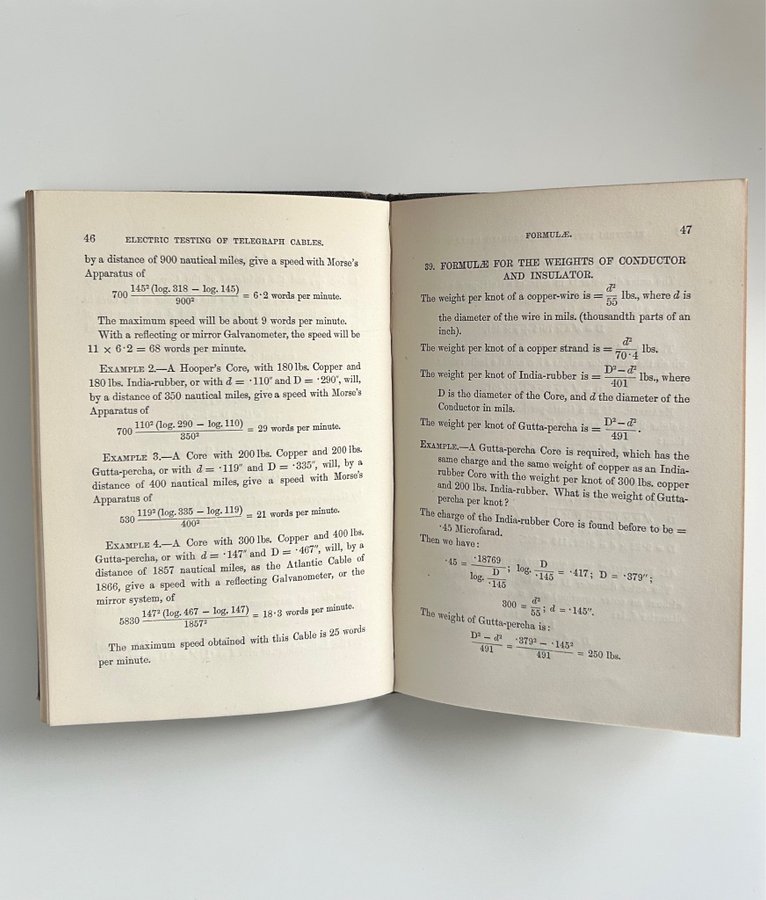 46 ELECTRIC TESTING OF TELEGRAPH CABLES.
by a distance of 900 nautical miles, give a speed with Morse's
Apparatus of
700 145² (log. 318 – log. 145) / 900² = 6·2 words per minute.
The maximum speed will be about 9 words per minute.
With a reflecting or mirror Galvanometer, the speed will be
11 × 6·2 = 68 words per minute.
EXAMPLE 2.—A Hooper's Core, with 180 lbs. Copper and
180 lbs. India-rubber, or with d = ·110″ and D = ·290″, will,
by a distance of 350 nautical miles, give a speed with Morse's
Apparatus of
700 110² (log. 290 – log. 110) / 350² = 29 words per minute.
EXAMPLE 3.—A Core with 200 lbs. Copper and 200 lbs.
Gutta-percha, or with d = ·119″ and D = ·335″, will, by a
distance of 400 nautical miles, give a speed with Morse's
Apparatus of
530 119² (log. 335 – log. 119) / 400² = 21 words per minute.
EXAMPLE 4.—A Core with 300 lbs. Copper and 400 lbs.
Gutta-percha, or with d = ·147″ and D = ·467″, will, by a
distance of 1857 nautical miles, as the Atlantic Cable of
1866, give a speed with a reflecting Galvanometer, or the
mirror system, of
5830 147² (log. 467 – log. 147) / 1857² = 18·3 words per minute.
The maximum speed obtained with this Cable is 25 words
per minute.
FORMULÆ. 47
39. FORMULÆ FOR THE WEIGHTS OF CONDUCTOR
AND INSULATOR.
The weight per knot of a copper-wire is = d² / 55 lbs., where d is
the diameter of the wire in mils. (thousandth parts of an
inch).
The weight per knot of a copper strand is = d² / 70·4 lbs.
The weight per knot of India-rubber is = D² – d² / 401 lbs., where
D is the diameter of the Core, and d the diameter of the
Conductor in mils.
The weight per knot of Gutta-percha is = D² – d² / 491.
EXAMPLE.—A Gutta-percha Core is required, which has the
same charge and the same weight of copper as an India-
rubber Core with the weight per knot of 300 lbs. copper
and 200 lbs. India-rubber. What is the weight of Gutta-
percha per knot?
The charge of the India-rubber Core is found before to be =
·45 Microfarad.
Then we have:
·45 = ·18769 / log. D / ·145; log. D / ·145 = ·417; D = ·379″;
300 = d² / 55; d = ·145″.
The weight of Gutta-percha is:
D² – d² / 491 = ·379² – ·145² / 491 = 250 lbs.